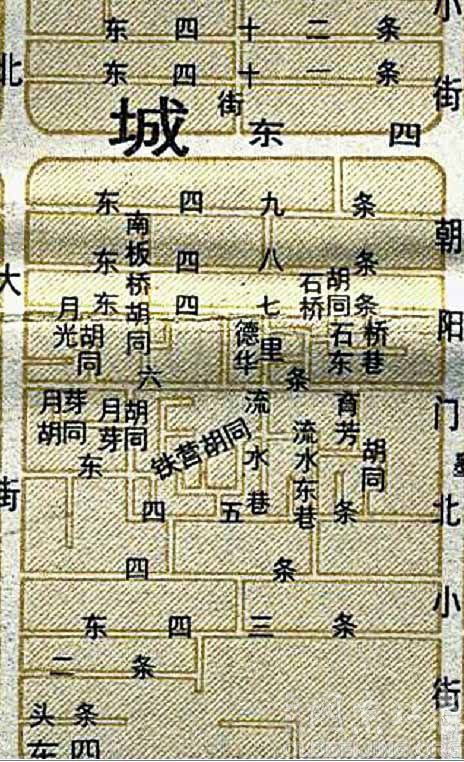 东四十二条
东四十一条
小街
北
街
城
东四
东四九条
南板桥胡同
朝阳门北小街
东四八条
大
石桥胡同
东四七条
月光胡同
德华里
石桥东巷
六条
月芽胡同
月芽胡同
流水巷
育芳胡同
铁营胡同
流水东巷
东
街
四五条
四条
东四三条
二条
头条
东四